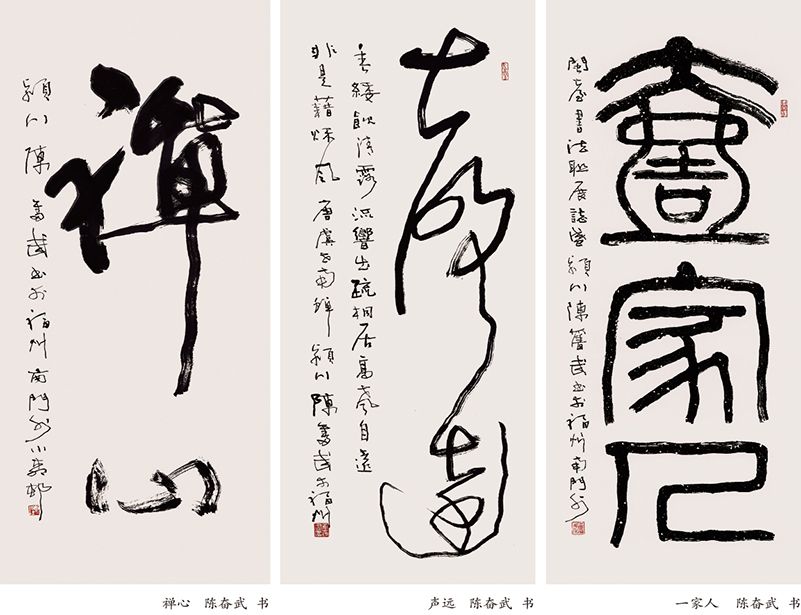 禪心
潁川陳奮武书于福州南門外小邨
聲遠
垂緌飲清露流響出疏桐居高聲自遠
非是藉秋風唐虞世南蟬潁川陳奮武于福州
壹家人
閩臺書法聯展誌慶潁川陳奮武书于福州南門外
禅心 陈奋武 书
声远 陈奋武 书
一家人 陈奋武 书